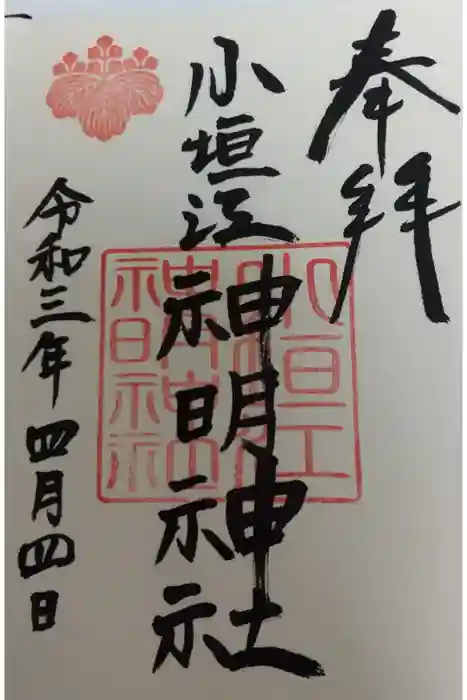 奉拝
小垣江神明神社
小垣江
神明神社
令和三年四月四日